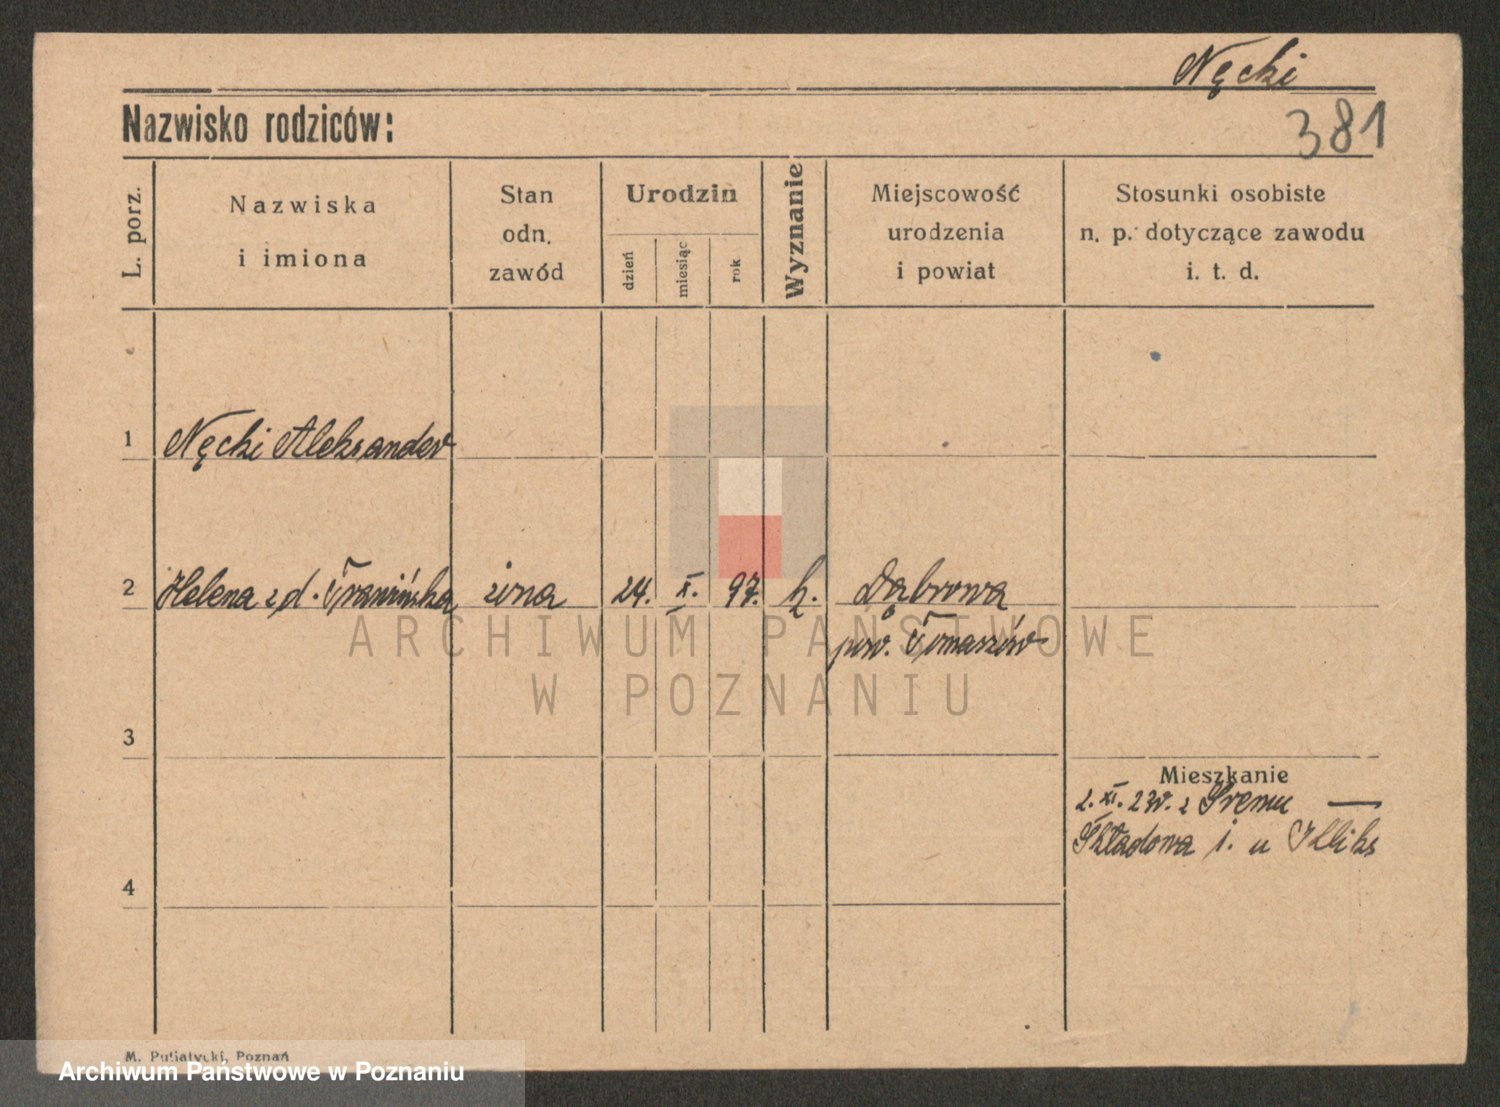 Nęcki
Nazwisko rodziców:
381
L. porz.
Nazwiska
i imiona
Stan
odn.
zawód
Urodzin
dzień
miesiąc
rok
Wyznanie
Miejscowość
urodzenia
i powiat
Stosunki osobiste
n. p. dotyczące zawodu
i. t. d.
1 Nęcki Aleksander
2 Helena z d. żona 24. X. 97. k. Dąbrowa
pow. Tomaszów
ARCHIWUM PAŃSTWOWE
W POZNANIU
3
Mieszkanie
2. XI. 23 r. z Śremu —
Składowa 1. u
4
M. Putiatycki, Poznań
Archiwum Państwowe w Poznaniu